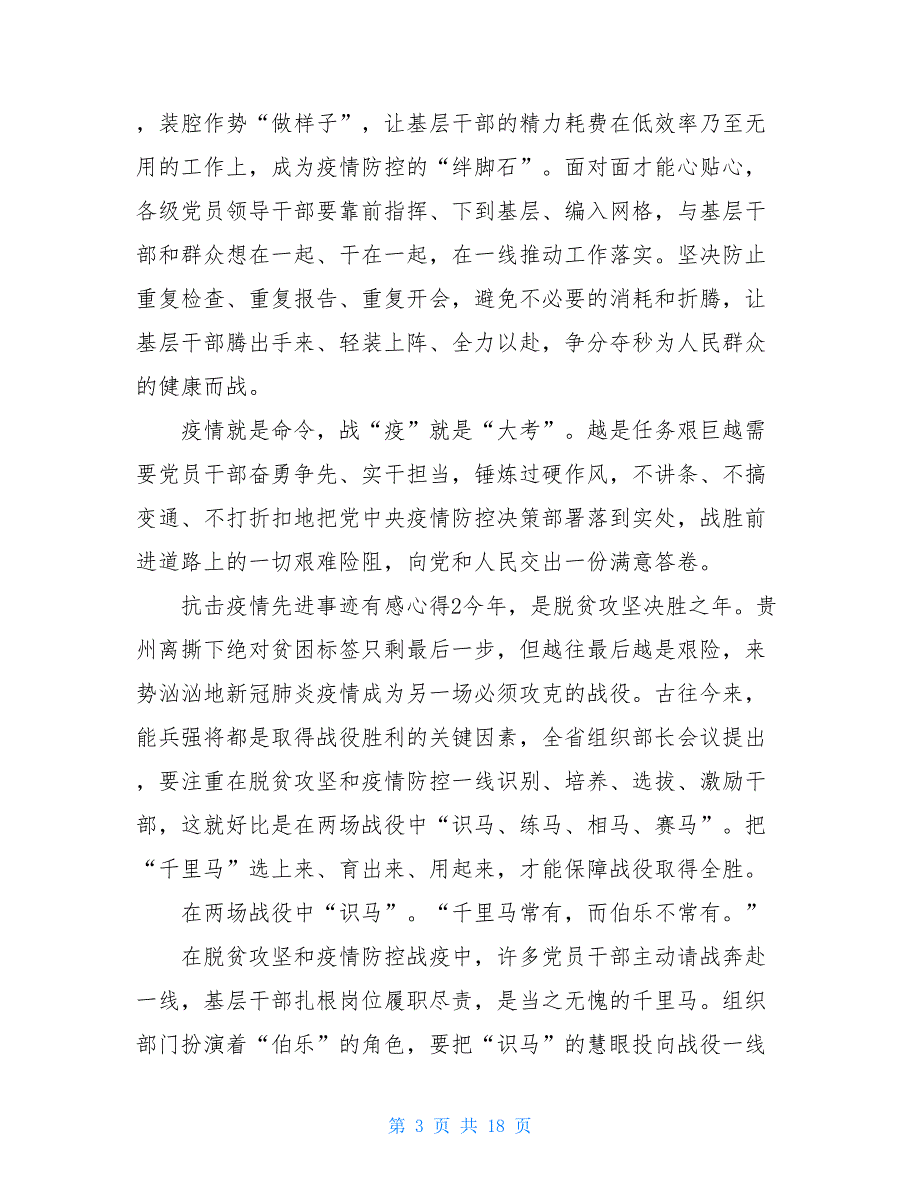 ，装腔作势“做样子”，让基层干部的精力耗费在低效率乃至无
用的工作上，成为疫情防控的“绊脚石”。面对面才能心贴心，
各级党员领导干部要靠前指挥、下到基层、编入网格，与基层干
部和群众想在一起、干在一起，在一线推动工作落实。坚决防止
重复检查、重复报告、重复开会，避免不必要的消耗和折腾，让
基层干部腾出手来、轻装上阵、全力以赴，争分夺秒为人民群众
的健康而战。
疫情就是命令，战“疫”就是“大考”。越是任务艰巨越需
要党员干部奋勇争先、实干担当，锤炼过硬作风，不讲条、不搞
变通、不打折扣地把党中央疫情防控决策部署落到实处，战胜前
进道路上的一切艰难险阻，向党和人民交出一份满意答卷。
抗击疫情先进事迹有感心得2今年，是脱贫攻坚决胜之年。贵
州离撕下绝对贫困标签只剩最后一步，但越往最后越是艰险，来
势汹汹地新冠肺炎疫情成为另一场必须攻克的战役。古往今来，
能兵强将都是取得战役胜利的关键因素，全省组织部长会议提出
，要注重在脱贫攻坚和疫情防控一线识别、培养、选拔、激励干
部，这就好比是在两场战役中“识马、练马、相马、赛马”。把
“千里马”选上来、育出来、用起来，才能保障战役取得全胜。
在两场战役中“识马”。“千里马常有，而伯乐不常有。”
在脱贫攻坚和疫情防控战疫中，许多党员干部主动请战奔赴
一线，基层干部扎根岗位履职尽责，是当之无愧的千里马。组织
部门扮演着“伯乐”的角色，要把“识马”的慧眼投向战役一线
第 3 页 共 18 页